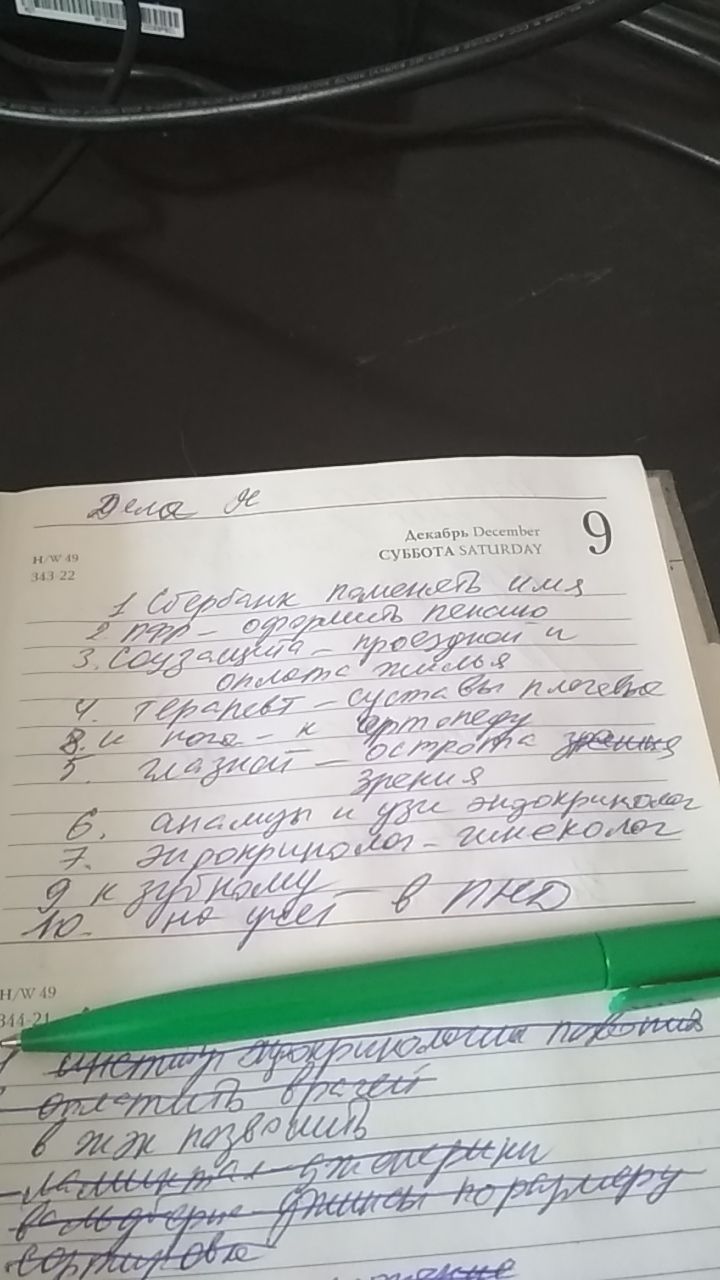 Дела Я
Декабрь December
9
H/W 49
СУББОТА SATURDAY
343-22
1 Сбербанк поменять имя
2 ПФР - оформить пенсию
3. Соцзащита - проездной и
оплата жилья
4. терапевт - суставы плечевые
8. и нога - к ортопеду
5. глазной - острота зрения
зрения
6. анализы и узи эндокринолог
7. эндокринолог - гинеколог
9 к зубному
10. на учет в ПНД
H/W 49
344-21
институт эндокринологии позвонить
оплатить врачей
в жж позвонить
вальдберис джинсы по размеру
сортировка